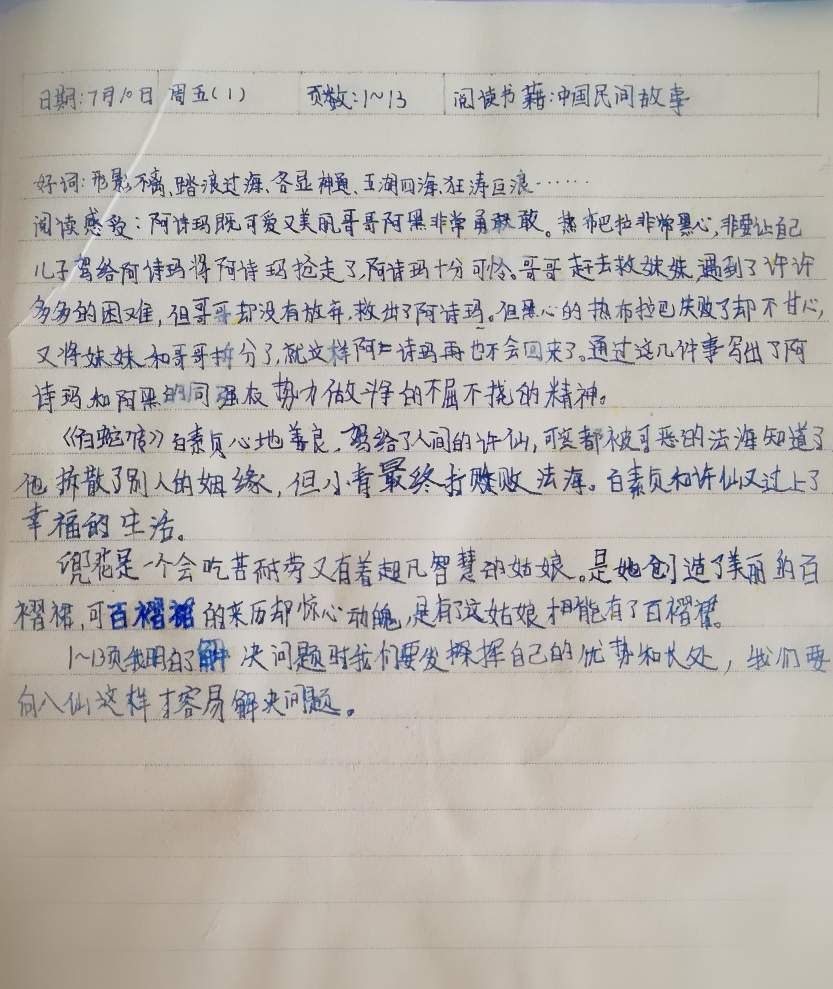 日期:7月10日 周五(1) 页数:1~13 阅读书籍:中国民间故事
好词:形影不离、踏浪过海、各显神通、五湖四海、狂涛巨浪……
阅读感受:阿诗玛既可爱又美丽哥哥阿黑非常勇敢。热布巴拉非常黑心,非要让自己
儿子娶给阿诗玛将阿诗玛抢走了,阿诗玛十分可怜。哥哥赶去救妹妹,遇到了许许
多多的困难,但哥哥却没有放弃,救出了阿诗玛。但黑心的热布拉巴失败了却不甘心,
又将妹妹和哥哥拆分了,就这样阿诗玛再也不会回来了。通过这几件事写出了阿
诗玛和阿黑的同强权势力做斗争的不屈不挠的精神。
《白蛇传》白素贞心地善良,嫁给了人间的许仙,可这都被可恶的法海知道了
他拆散了别人的姻缘,但小青最终打败法海。白素贞和许仙又过上了
幸福的生活。
兜花是一个会吃苦耐劳又有着超凡智慧的姑娘。是她创造了美丽的百
褶裙,可百褶裙的来历却惊心动魄,是有了这姑娘才能有了百褶裙。
1~13页我明白了解决问题时我们要发挥自己的优势和长处,我们要
向八仙这样才容易解决问题。